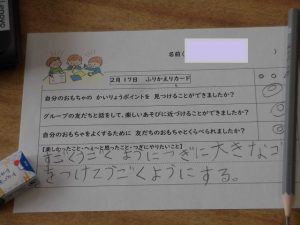 名前(
2月17日 ふりかえりカード
自分のおもちゃの かいりょうポイントを 見つけることができましたか?
グループの友だちと話をして、楽しいあそびに近づけることができましたか?
自分のおもちゃをよくするために 友だちのおもちゃとくらべられましたか?
【楽しむったこと・へぇ~と思ったこと・つぎにやりたいこと】
すごくうごくようにつぎに大きなゴ
をつけてうごくようにする。